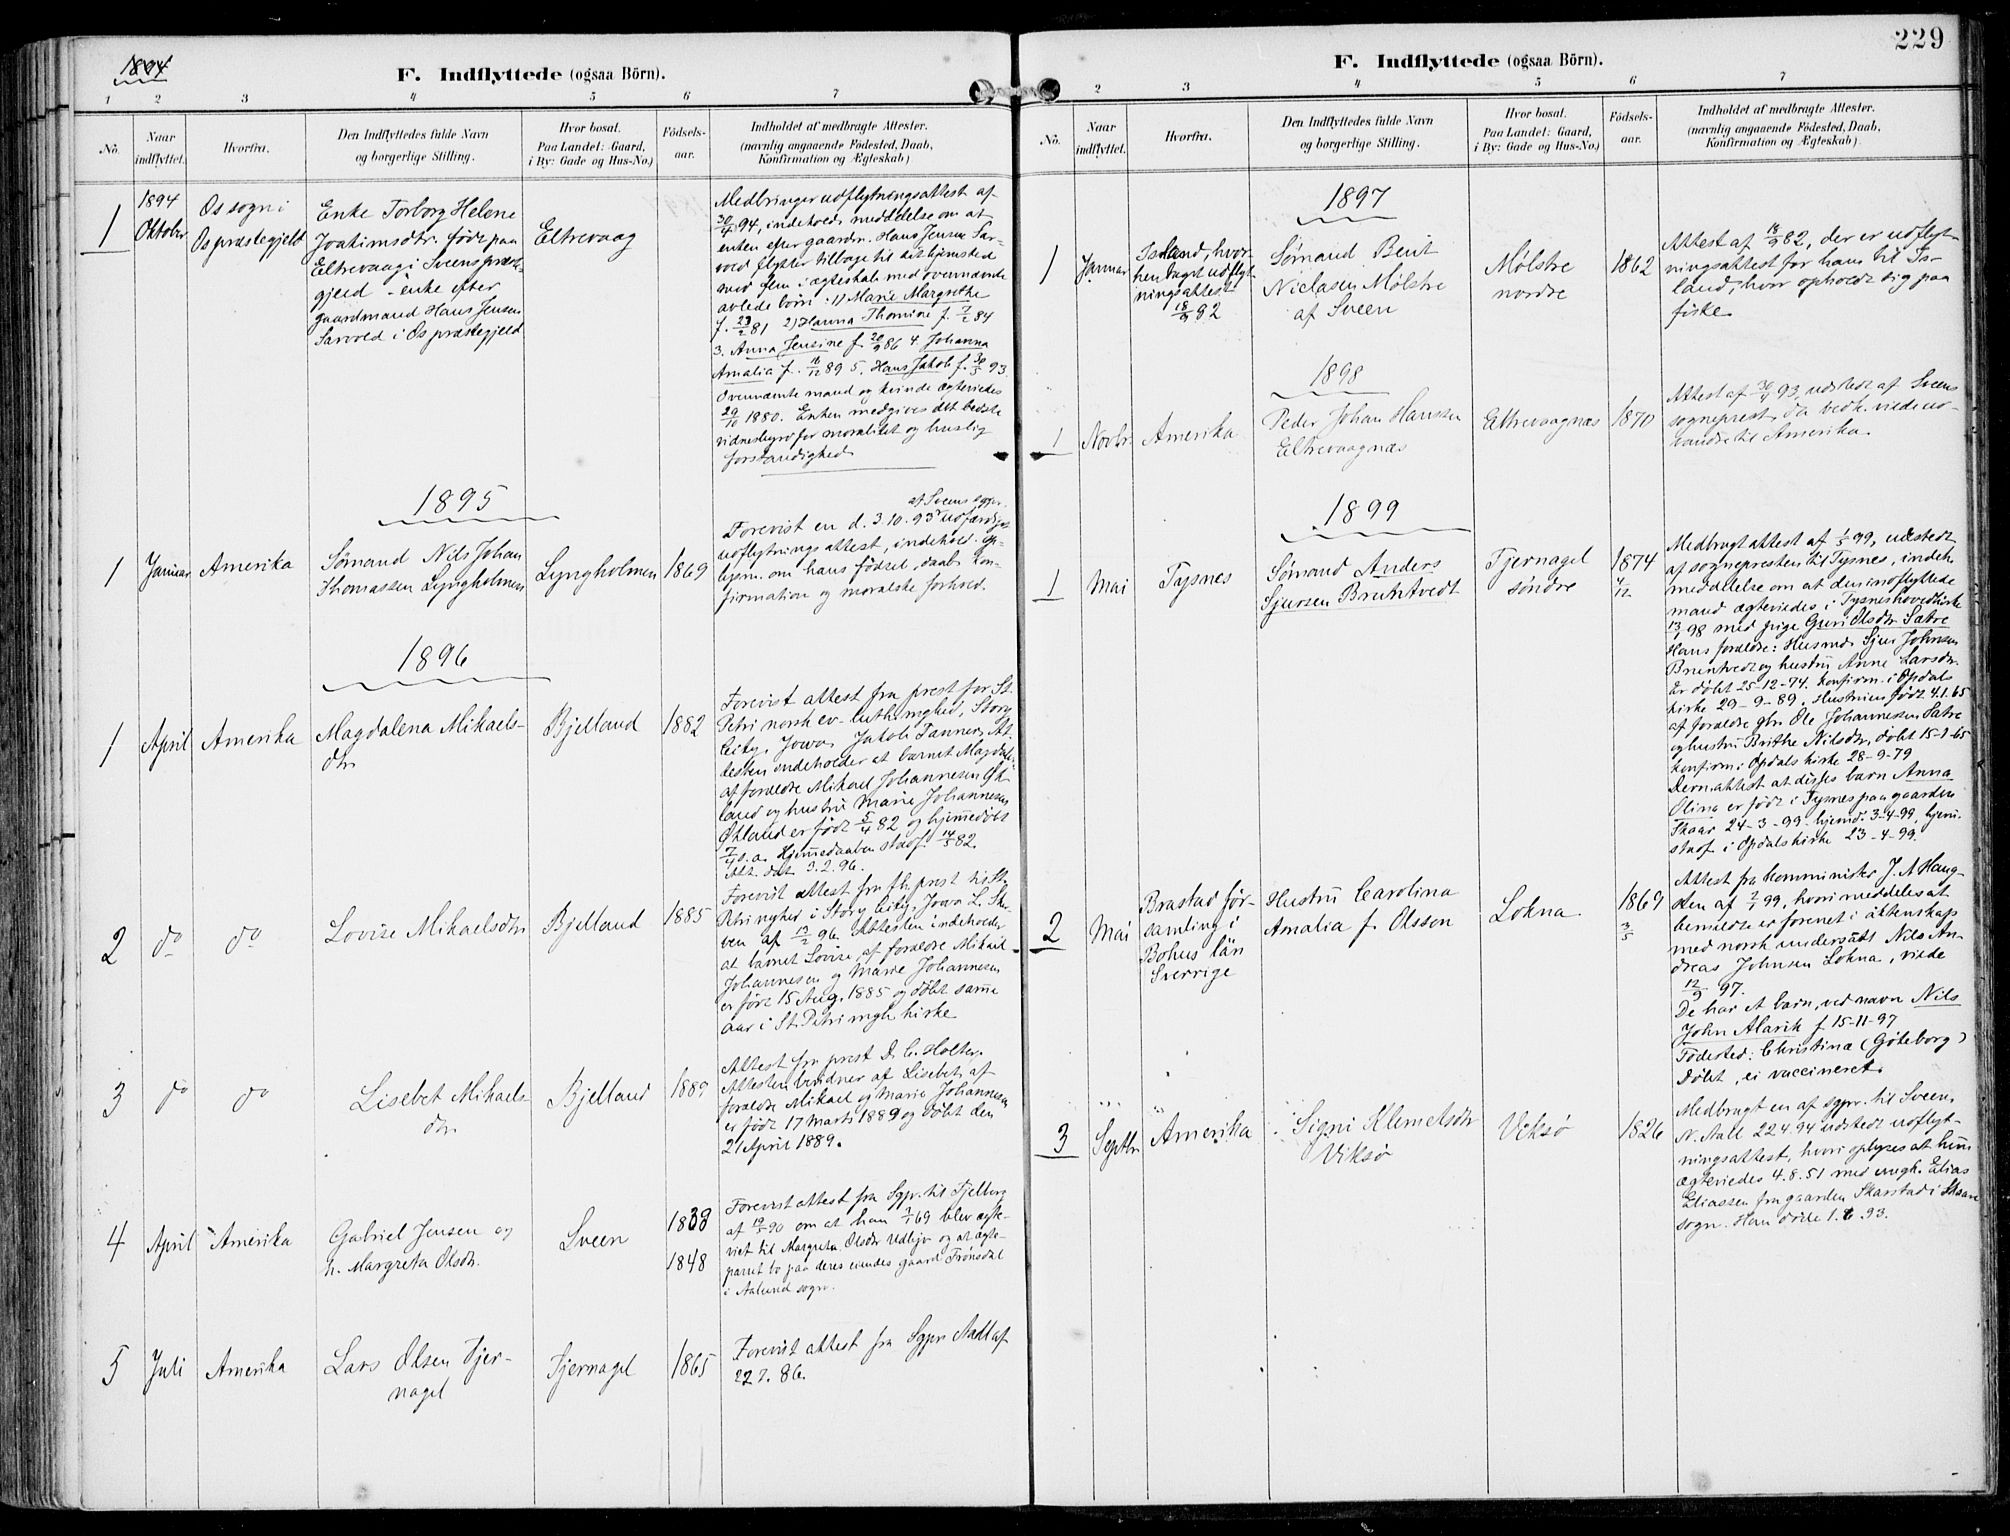 1894
F. Indflyttede (ogsaa Börn).
1 2 3 4 5 6 7
No.
Naar
indflyttet.
Hvorfra.
Den Indflyttedes fulde Navn
og borgerlige Stilling.
Hvor bosat.
Paa Landet: Gaard,
i By: Gade og Hus-No.)
Födsels-
aar.
Indholdet af medbragte Attester.
(navnlig angaaende Födested, Daab,
Konfirmation og Ægteskab)
1
1894
Oktober
Os sogn i
Os præstegjeld
Enke Torborg Helene
Joakimsdtr. født paa
Eltrevaag i Sveens præste-
gjeld - enke efter
gaardmand Hans Jensen
Sarvold i Os præstegjeld
Eltrevaag
Medbringer udflytningsattest af
30/4 94, indeholds meddelse om at
enken efter gaardm. Hans Jensen Sar-
vold flytter tilbage til sit hjemsted
med fem i ægteskab med ovennævnte
avlede børn: 1) Marie Margrethe
f. 23/2 81 2) Hanna Thomine f. 7/2 84
3. Anna Jensine f. 20/9 86 4. Johanna
Amalia f. 16/12 89 5. Hans Jakob f. 30/5 93
Ovennævnte mand og kvinde ægteviedes
29/10 1880. Enken medgives det bedste
vidnesbyrd for moralitet og huslig
forstandighed
1895
1
Januar
Amerika
Sømand Nils Johan
Thomassen Lyngholmen
Lyngholmen
1869
af Sveens sgpr.
Forevist en d. 3.10.93 udfærdiget
udflytningsattest, indehold. op-
lysn. om hans fødsel, daab, kon-
firmation og moralske forhold.
1896
1
April
Amerika
Magdalena Mikaels-
dtr
Bjelland
1882
Forevist attest fra prest for St.
Petri norsk ev-luth mghed, Story
City, Jowa Jakob Tanner. At-
testen indeholder at barnet Magdal.
af forældre Mikael Johannesen Øk-
land og hustru Marie Johannesen
Økland er født 5/4 82 og hjemedøbt
7/4 s.a. Hjemmedaaben stadf. 14/5 82.
Att. dat. 3.2.96.
2
do
do
Lovise Mikaelsdtr
Bjelland
1885
Forevist attest fra fh. prest til St.
Petri nghed i Story City, Jowa
ven af 13/2 96. Attesten indeholder
at barnet Lovise af forældre Mikael
Johannesen og Marie Johannesen
er født 15 Aug. 1885 og døbt samme
aar i St. Petri mgh kirke
3
do
do
Lisebet Mikaels-
dtr.
Bjelland
1889
Attest fra prest D. C. Holter.
Attesten vidner af Lisebet af
forældre Mikael og Marie Johannesen
er født 17 Marts 1889 og døbt den
21 April 1889.
4
April
Amerika
Gabriel Jensen og
h. Margreta Olsdtr.
Sveen
1838
1848
Forevist attest fra Sgpr. til Fjelberg
af 19/5 90 om at han 7/1 69 blev ægte-
viet til Margreta Olsdtr Vedlejv og at ægte-
parret bo paa deres eiendes gaard Frønsdal
i Aalund sogn.
5
Juli
Amerika
Lars Olsen Tjer-
nagel
Tjernagel
1865
Forevist attest fra Sgpr. Aall af
22.7.86.
229
F. Indflyttede (ogsaa Börn).
2 3 4 5 6 7
No.
Naar
indflyttet.
Hvorfra.
Den Indflyttedes fulde Navn
og borgerlige Stilling.
Hvor bosat.
Paa Landet: Gaard,
i By: Gade og Hus-No.)
Födsels-
aar.
Indholdet af medbragte Attester.
(navnlig angaaende Födested, Daab,
Konfirmation og Ægteskab)
1897
1
Januar
Island, hvor-
hen taget udflyt-
ningsattest
18/9 82
Sømand Berit
Niclasen Mølstre
af Sveen
Mølstre
nordre
1862
Attest af 18/9 82, der er udflyt-
ningsattest for ham til Is-
land, hvor opholdt sig paa
fiske
1898
1
Novbr.
Amerika
Peder Johan Hansen
Eltrevaagnæs
Eltrevaagnæs
1870
Attest af 30/4 93, udstedt af Sveens
sogneprest da vedk. vilde ud-
vandre til Amerika.
1899
1
Mai
Tysnes
Sømand Anders
Sjursen Bruntvedt
Tjernagel
søndre
1874
4/12
Medbragt attest af 1/5 99, udstedt
af sognepresten til Tysnes, indeh.
meddelelse om at den indflyttede
mand ægteviedes i Tysnes hovedkirke
13/1 98 med pige Guri Olsdtr Satre
Hans forældre: Husmd. Sjur Johnsen
Bruntvedt og hustru Anne Larsdtr.
Er døbt 25-12-74. konfirm. i Opdals
kirke 29-9-89. Hustruen født 4.1.65
af forældre gbr. Ole Johannesen Satre
og hustru Brithe Nilsdtr, døbt 15-1-65
konfirm. i Opdals kirke 28-9-79
Dernæst attest at disses barn Anna
Olina er født i Tysnes paa gaarden
Skaar 24-3-99. hjemd. 3-4-99, hjem.
stadf. i Opdals kirke 23-4-99.
2
Mai
Brastad för-
samling i
Bohus län
Sverrige
Hustru Carolina
Amalia f. Olsson
Lokna
1869
3/5
Attest fra Komminister J. A. Haug-
den af 7/1 99, hvori meddeles at
bemeldte er forenet i äktenskap
med norsk undersått Nils An-
dreas Johnsen Lokna, viede
12/9 97.
De har et barn, ved navn Nils
John Alarik f 15-11-97
Fødested: Christinæ (Göteborg)
Døbt, ei vaccineret.
3
Septbr
Amerika
Signi Klemetsdtr
Viksø
Viksø
1826
Medbragt en af sgpr. til Sveen,
N. Aall 22.4.94 udstedt udflyt-
ningsattest, hvori oplyses at hun
ægteviedes 4.8.51 med ungk. Elias
Eliassen fra gaarden Skarstad i Skaare
sogn. Han døde 1.6.93.